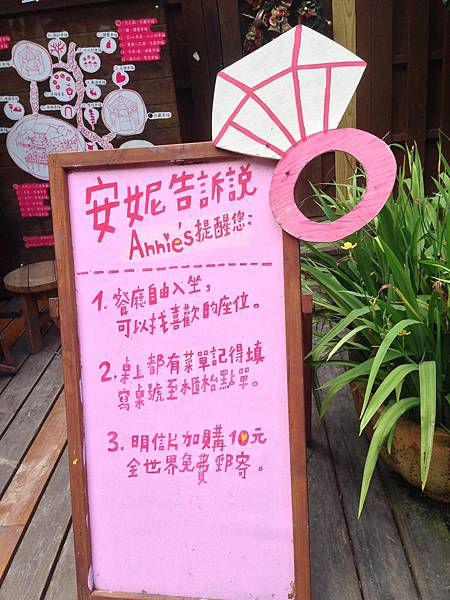 安妮告訴説
Annie's提醒您:
1. 餐廳自由入坐,
可以找喜歡的座位。
2. 桌上都有菜單記得填
寫桌號至櫃枱點單。
3. 明信片加購10元
全世界免費郵寄。